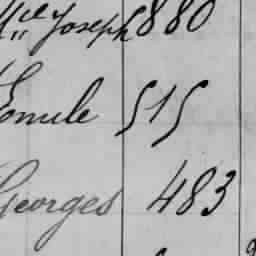 Joseph 880
Emile 515
Georges 483